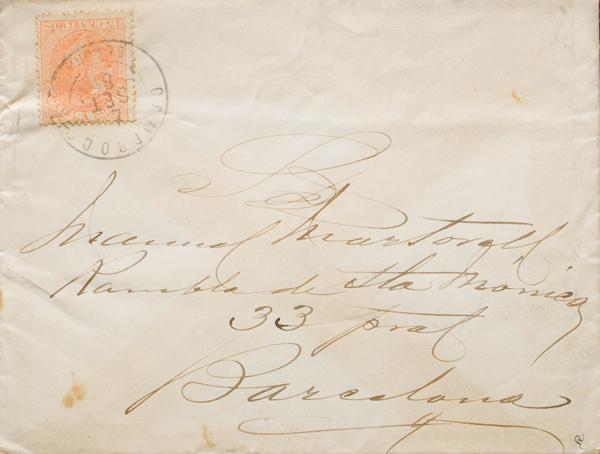 15 CENTIMOS
CAMPRODON
B
Manuel Martorell
Rambla de Sta Monica
33 pral
Barcelona